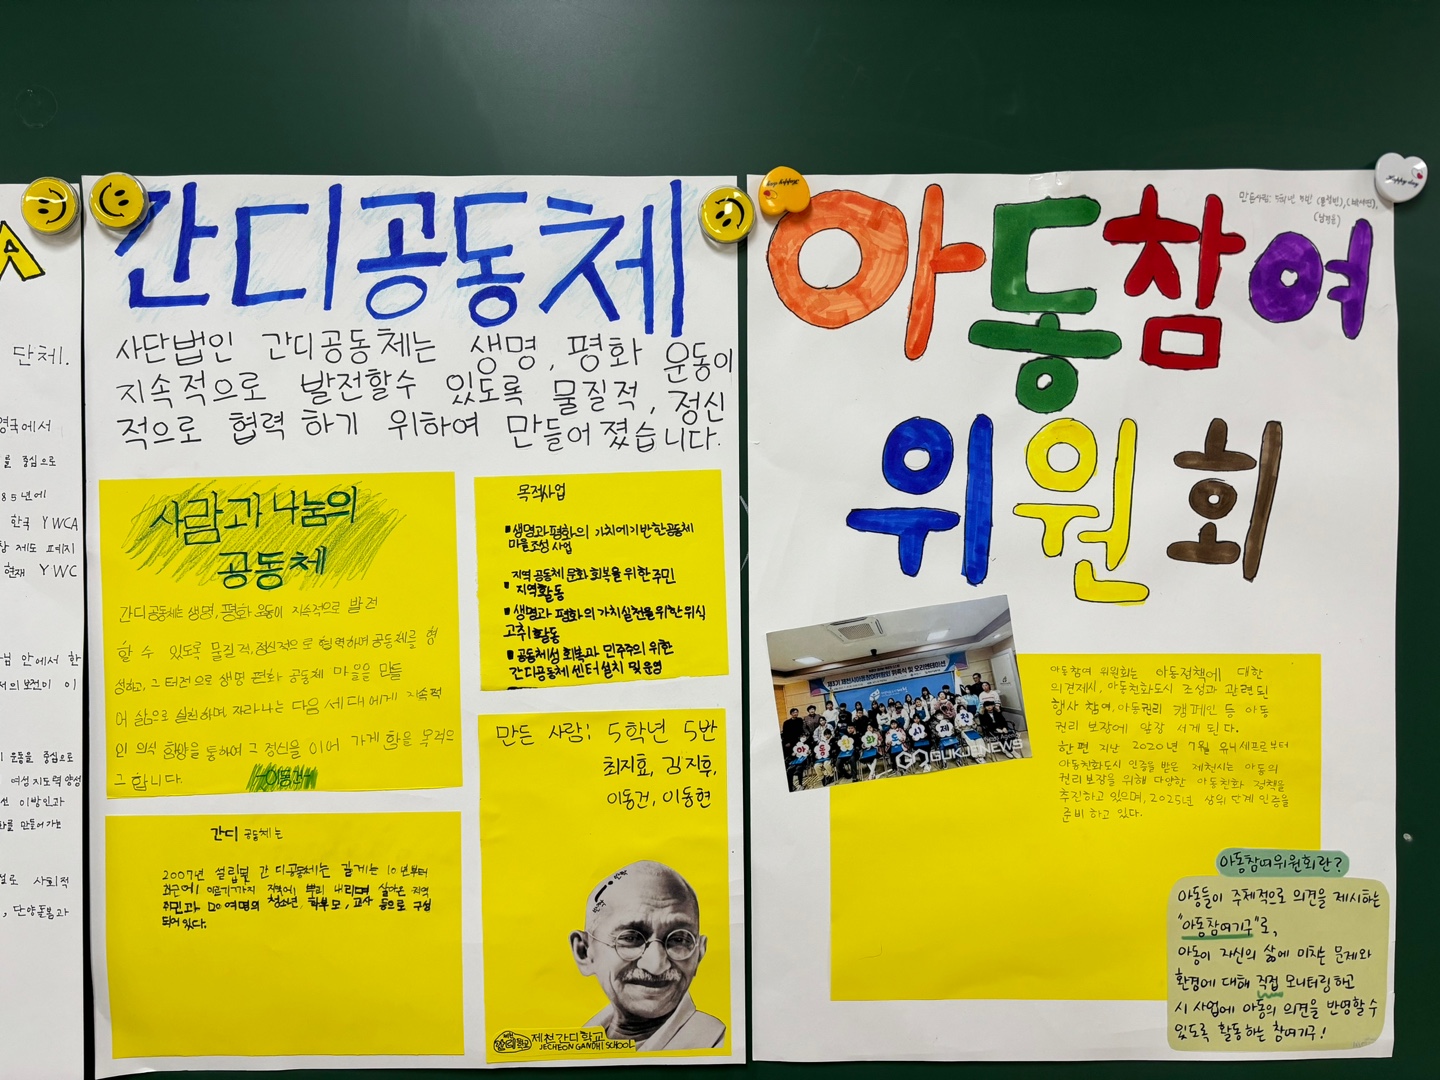 A
단체.
영국에서
를 중심으로
85년에
한국 YWCA
제도 폐지
현재 YWC
안에서 한
운동을 중심으로
여성지도력양성
이방인과
를 만들어가는
사회적
, 단양돌봄과
간디공동체
사단법인 간디공동체는 생명, 평화 운동이
지속적으로 발전할수 있도록 물질적, 정신
적으로 협력 하기 위하여 만들어졌습니다.
사람과 나눔의
공동체
간디공동체는 생명, 평화 운동이 지속적으로 발전
할 수 있도록 물질적, 정신적으로 협력하며 공동체를 형
성하고, 그 터전으로 생명 평화 공동체 마을을 만들
어 삶으로 실천하며, 자라나는 다음 세대에게 지속적
인 의식 함양을 통하여 그 정신을 이어 가게 함을 목적으
그 합니다.
-이동건-
간디 공동체는
2007년 설립된 간디공동체는 길게는 10년부터
최근에 이르기까지 지역에 뿌리 내리며 살아온 지역
주민과 20여명의 청소년, 학부모, 교사 등으로 구성
되어 있다.
목적사업
▪생명과 평화의 가치에 기반한 공동체
마을조성 사업
지역 공동체 문화 회복을 위한 주민
▪지역활동
▪생명과 평화의 가치실천을 위한 의식
고취 활동
▪공동체성 회복과 민주주의 위한
간디공동체 센터 설치 및 운영
만든 사람: 5학년 5반
최지효, 김지후,
이동건, 이동현
제천간디학교
JECHEON GANDHI SCHOOL
Happy day
Happy day
만든사람: 5학년 5반
아동참여
위원회
제천시아동참여위원회 위촉식 및 오리엔테이션
GUKJENEWS
아동참여 위원회는 아동정책에 대한
의견제시, 아동친화도시 조성과 관련된
행사 참여, 아동권리 캠페인 등 아동
권리 보장에 앞장 서게 된다.
한편 지난 2020년 7월 유니세프로부터
아동친화도시 인증을 받은 제천시는 아동의
권리보장을 위해 다양한 아동친화 정책을
추진하고 있으며, 2025년 상위 단계 인증을
준비 하고 있다.
아동참여위원회란?
아동들이 주체적으로 의견을 제시하는
"아동참여기구"로,
아동이 자신의 삶에 미치는 문제와
환경에 대해 직접 모니터링하고
시 사업에 아동의 의견을 반영할수
있도록 활동하는 참여기구!